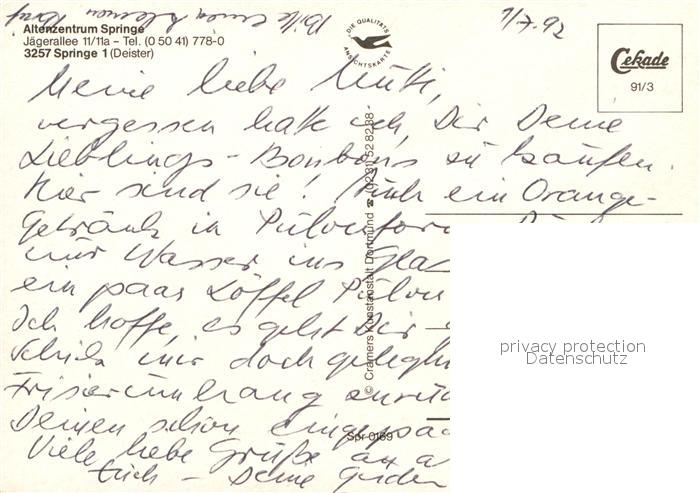 Altenzentrum Springe
Jägerallee 11/11a – Tel. (0 50 41) 778-0
3257 Springe 1 (Deister)
Bitte einen kleinen
1/7.92
DIE QUALITÄTS
ANSICHTSKARTE
Cekade
91/3
Meine liebe Mutti,
vergessen hatte ich, Dir Deine
Lieblings-Bonbons zu kaufen.
Hier sind sie! Auch ein Orange-
Getränk in Pulverfor
nur Wasser ins Glas
ein paar Löffel Pulver
Ich hoffe, es geht Dir
Schick mir doch gelegen
Frisierumhang zurück
Deinen schon eingepac
Viele liebe Grüße an a
Euch – Deine
© Cramers Kunstanstalt Dortmund ☎ (02 31) 52 82 38
Spr 0169
privacy protection
Datenschutz